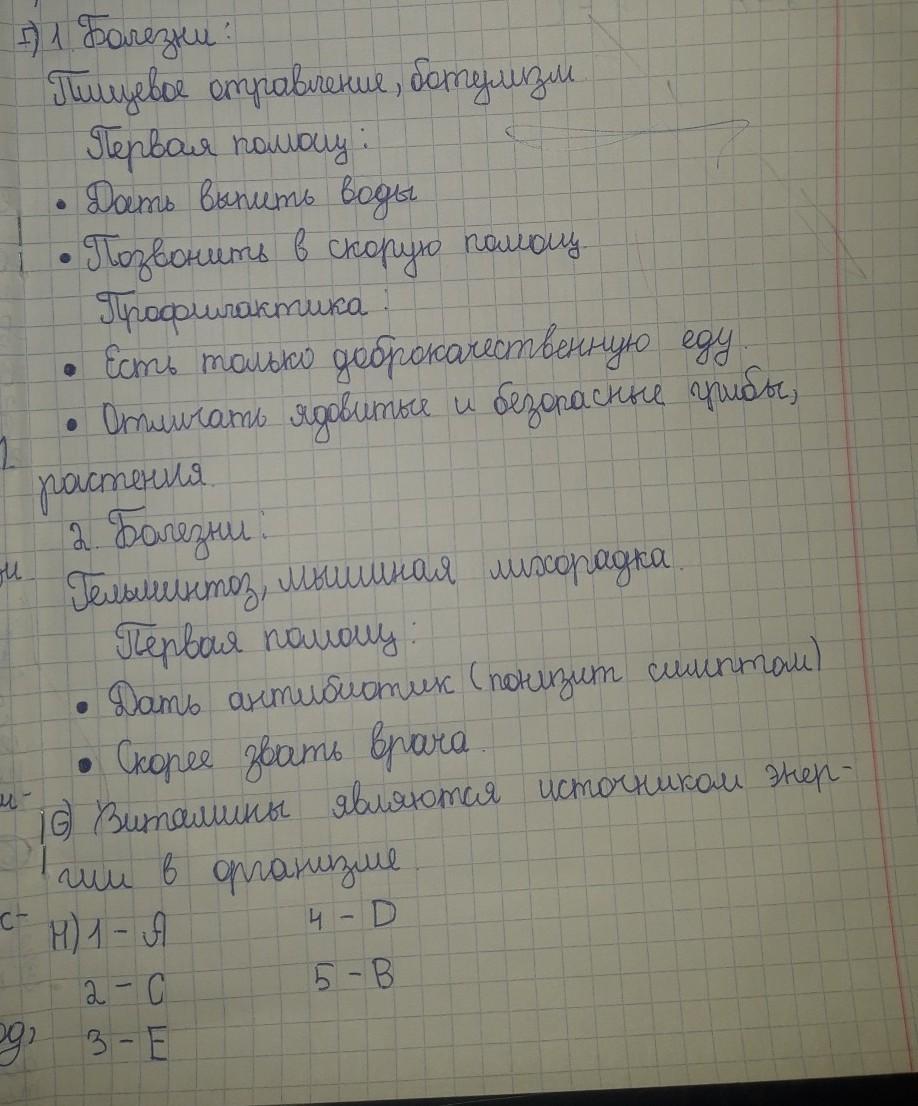 F) 1. Болезни:
Пищевое отравление, ботулизм
Первая помощь:
• Дать выпить воды
• Позвонить в скорую помощь.
Профилактика:
• Есть только доброкачественную еду.
• Отличать ядовитые и безопасные грибы,
растения.
2. Болезни:
Гельминтоз, мышиная лихорадка.
Первая помощь:
• Дать антибиотик (понизит симптом)
• Скорее звать врача.
G) Витамины являются источником энер-
гии в организме.
H) 1 - A
4 - D
2 - C
5 - B
3 - E